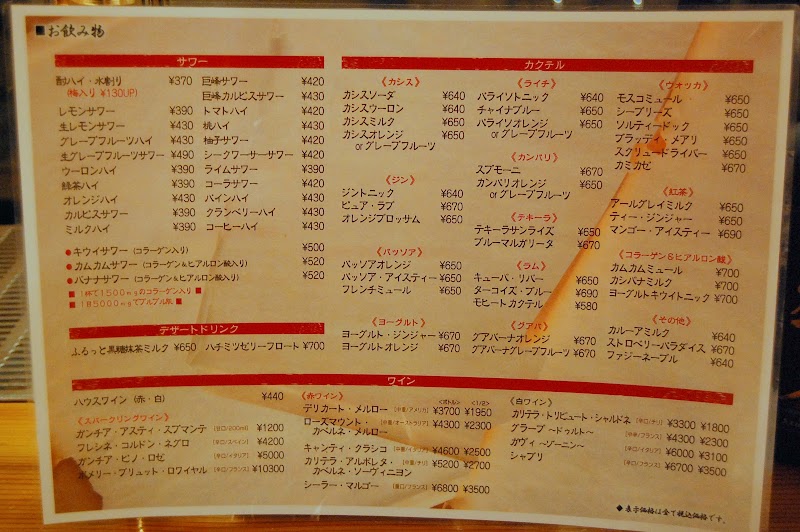 ■お飲み物
サワー
酎ハイ・水割り ¥370
(梅入り ¥130UP)
レモンサワー ¥390
生レモンサワー ¥430
グレープフルーツハイ ¥430
生グレープフルーツサワー ¥490
ウーロンハイ ¥390
緑茶ハイ ¥390
オレンジハイ ¥430
カルピスサワー ¥390
ミルクハイ ¥390
巨峰サワー ¥420
巨峰カルピスサワー ¥430
トマトハイ ¥430
桃ハイ ¥430
柚子サワー ¥420
シークワーサーサワー ¥420
ライムサワー ¥390
コーラサワー ¥420
パインハイ ¥430
クランベリーハイ ¥430
コーヒーハイ ¥430
●キウイサワー (コラーゲン入り) ¥500
●カムカムサワー (コラーゲン&ヒアルロン酸入り) ¥520
●バナナサワー (コラーゲン&ヒアルロン酸入り) ¥520
■1杯で1500mgのコラーゲン入り■
■1日5000mgでプルプル肌■
デザートドリンク
ふるっと黒糖抹茶ミルク ¥650 ハチミツゼリーフロート ¥700
カクテル
《カシス》
カシスソーダ ¥640
カシスウーロン ¥640
カシスミルク ¥650
カシスオレンジ ¥650
or グレープフルーツ
《ジン》
ジントニック ¥640
ピュア・ラブ ¥670
オレンジブロッサム ¥650
《パッソア》
パッソアオレンジ ¥650
パッソア・アイスティー ¥650
フレンチミュール ¥650
《ヨーグルト》
ヨーグルト・ジンジャー ¥670
ヨーグルトオレンジ ¥670
《ライチ》
パライソトニック ¥640
チャイナブルー ¥650
パライソオレンジ ¥650
or グレープフルーツ
《カンパリ》
スプモーニ ¥670
カンパリオレンジ ¥650
or グレープフルーツ
《テキーラ》
テキーラサンライズ ¥650
ブルーマルガリータ ¥670
《ラム》
キューバ・リバー ¥650
ターコイズ・ブルー ¥690
モヒートカクテル ¥580
《グアバ》
グアバーナオレンジ ¥670
グアバーナグレープフルーツ ¥670
《ウォッカ》
モスコミュール ¥650
シーブリーズ ¥650
ソルティードック ¥650
ブラッディ・メアリ ¥650
スクリュードライバー ¥650
カミカゼ ¥670
《紅茶》
アールグレイミルク ¥650
ティー・ジンジャー ¥650
マンゴー・アイスティー ¥690
《コラーゲン&ヒアルロン酸》
カムカムミュール ¥700
カシバナミルク ¥700
ヨーグルトキウイトニック ¥700
《その他》
カルーアミルク ¥640
ストロベリーパラダイス ¥670
ファジーネーブル ¥640
ワイン
ハウスワイン (赤・白) ¥440
《スパークリングワイン》
ガンチア・アスティ・スプマンテ [甘口/200ml] ¥1200
フレシネ・コルドン・ネグロ [辛口/スペイン] ¥4200
ガンチア・ピノ・ロゼ [辛口/イタリア] ¥5000
ポメリー・ブリュット・ロワイヤル [辛口/フランス] ¥10300
《赤ワイン》 <ボトル> <1/2>
デリカート・メルロー [中重/アメリカ] ¥3700 ¥1950
ローズマウント・ [中重/オーストラリア] ¥4300 ¥2300
カベルネ・メルロー
キャンティ・クラシコ [中重/イタリア] ¥4600 ¥2500
カリテラ・アルボレタ・ [中重/チリ] ¥5200 ¥2700
カベルネ・ソーヴィニヨン
シーラー・マルゴー [重口/フランス] ¥6800 ¥3500
《白ワイン》
カリテラ・トリビュート・シャルドネ [辛口/チリ] ¥3300 ¥1800
グラーブ ～ドゥルト～ [中辛/フランス] ¥4300 ¥2300
ガヴィ ～ゾーニン～ [辛口/イタリア] ¥6000 ¥3100
シャブリ [辛口/フランス] ¥6700 ¥3500
◆表示価格は全て税込価格です。